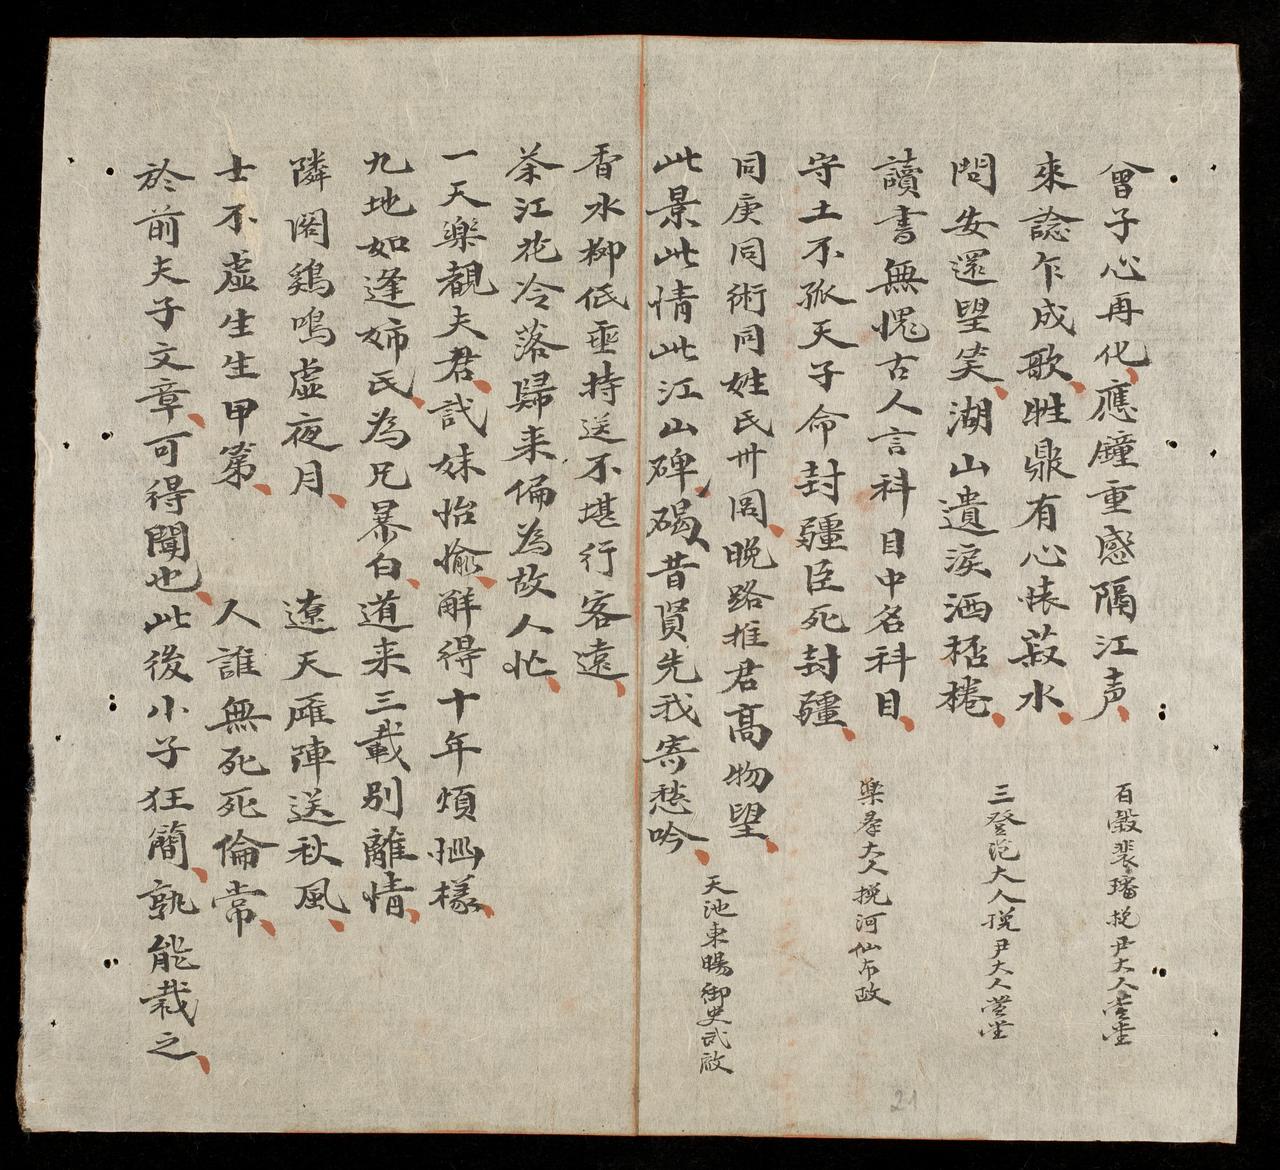 曾子心再化應鐘重感隔江声
百穀裴璠挽尹大人萱堂
來諗乍成歌牲鼎有心悵菽水
問安還望笑湖山遺淚洒桮棬
三登范大人挽尹大人萱堂
讀書無愧古人言科目中名科目
守土不孤天子命封疆臣死封疆
樂善大人挽河仙布政
同庚同術同姓氏卅罔晚路推君高物望
此景此情此江山碑碣昔賢先我寄愁吟
天池東暘御史武啟
香水柳低垂持送不堪行客遠
茶江花冷落歸来偏為故人忙
一天樂觀夫君弍妹怡愉解得十年煩惱樣
九地如逢姉氏為兄暴白道来三載別離情
隣閣鷄鳴虛夜月 遼天雁陣送秋風
士不虛生生甲第 人誰無死死倫常
於前夫子文章可得聞也此後小子狂簡孰能裁之
21